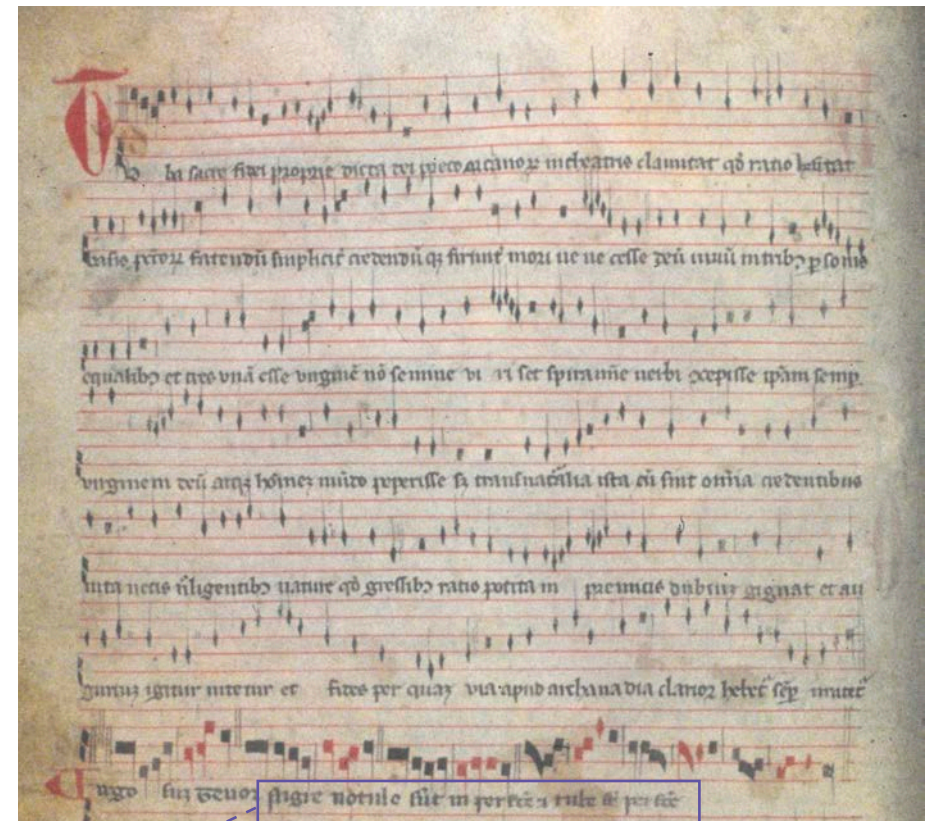 Tu ba sacre fidei proprie dicta dei p̄co arcanoꝝ in theatris clamitat qd̄ ratio hesitat
basis pc̄torꝝ fatendū simplicit̄ credendūqꝫ firmit̄ mori ue ne cesse deū unū in tribꝫ ꝑsonis
equalibꝫ et tres unū esse virginē nō semine vi ri set spiramīe verbi ꝯcepisse ip̄am semꝑ
virginem deū atqꝫ hoīnez mūdo peperisse sꝫ transnaturalia ista cū sint omīa credentibus
uita necis n̄ligentibꝫ nature qd̄ gressibꝫ ratio potita in premissis dubiuꝫ gignat et au
guriuꝫ igitur uitetur et fides per quaꝫ via apud archana dia clarior hebet̄ sēp imitet̄
Uirgo suꝫ Tenor nigre notule sūt in perfc̄e ⁊ rube sūt perfc̄e